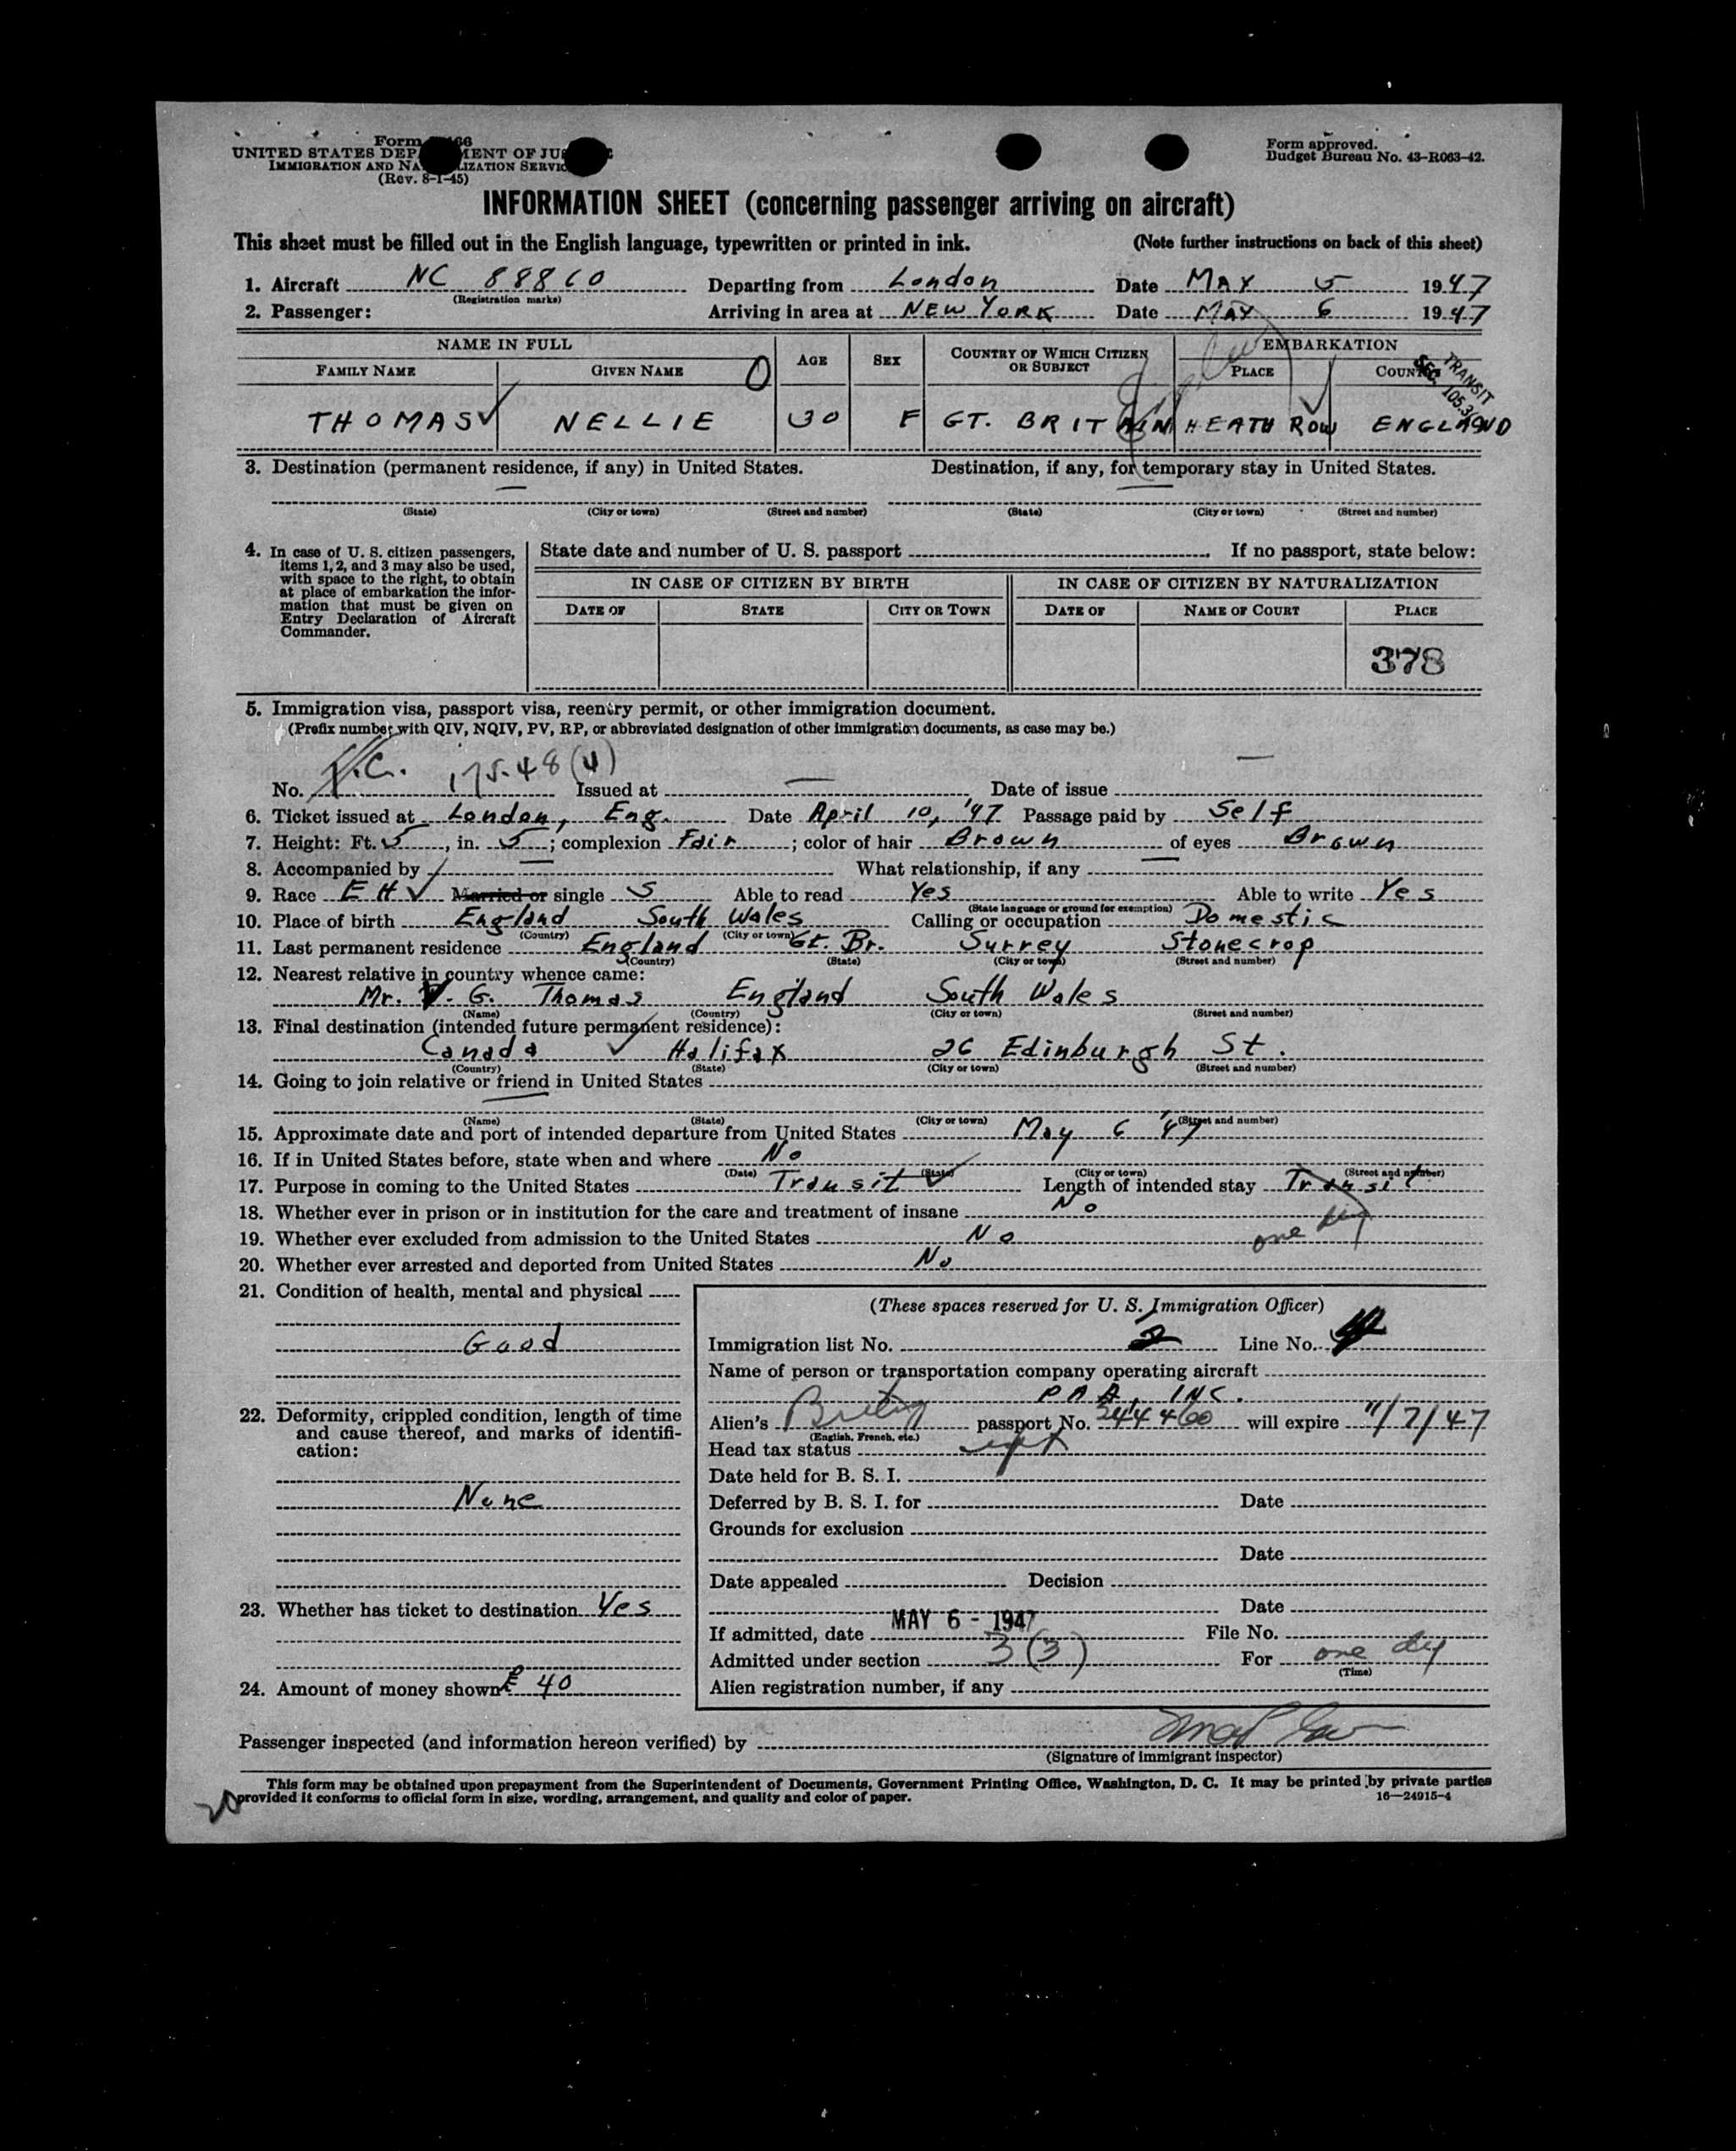 Form approved.
UNITED STATES
IMMIGRATION AND
Budget Bureau No. 43-R063-42.
(Rev. 8-1-45)
INFORMATION SHEET (concerning passenger arriving on aircraft)
This sheet must be filled out in the English language, typewritten or printed in ink. (Note further instructions on back of this sheet)
1. Aircraft NC 88860 Departing from London Date MAY 5 1947
(Registration marks)
2. Passenger: Arriving in area at NEW YORK Date MAY 6 1947
NAME IN FULL AGE SEX COUNTRY OF WHICH CITIZEN OR SUBJECT EMBARKATION
FAMILY NAME GIVEN NAME O PLACE
TRANSIT
SEC. 105.3
THOMAS NELLIE 30 F GT. BRITAIN HEATH ROW ENGLAND
3. Destination (permanent residence, if any) in United States. Destination, if any, for temporary stay in United States.
(State) (City or town) (Street and number) (State) (City or town) (Street and number)
4. In case of U. S. citizen passengers, items 1, 2, and 3 may also be used, with space to the right, to obtain at place of embarkation the information that must be given on Entry Declaration of Aircraft Commander.
State date and number of U. S. passport . If no passport, state below:
IN CASE OF CITIZEN BY BIRTH IN CASE OF CITIZEN BY NATURALIZATION
DATE OF STATE CITY OR TOWN DATE OF NAME OF COURT PLACE
378
5. Immigration visa, passport visa, reentry permit, or other immigration document.
(Prefix number with QIV, NQIV, PV, RP, or abbreviated designation of other immigration documents, as case may be.)
No. 175.48(4) Issued at — Date of issue —
6. Ticket issued at London, Eng. Date April 10, '47 Passage paid by Self
7. Height: Ft. 5, in. 5; complexion Fair; color of hair Brown of eyes Brown
8. Accompanied by — What relationship, if any —
9. Race EH Married or single S Able to read Yes Able to write Yes
(State language or ground for exemption)
10. Place of birth England South Wales Calling or occupation Domestic
(Country) (City or town)
11. Last permanent residence England Gt. Br. Surrey Stonecrop
(Country) (State) (City or town) (Street and number)
12. Nearest relative in country whence came:
Mr. G. Thomas England South Wales
(Name) (Country) (City or town) (Street and number)
13. Final destination (intended future permanent residence):
Canada Halifax 26 Edinburgh St.
(Country) (State) (City or town) (Street and number)
14. Going to join relative or friend in United States
(Name) (State) (City or town) (Street and number)
15. Approximate date and port of intended departure from United States May 6 '47
16. If in United States before, state when and where No
(Date) (State) (City or town) (Street and number)
17. Purpose in coming to the United States Transit Length of intended stay Transit
18. Whether ever in prison or in institution for the care and treatment of insane No
one day
19. Whether ever excluded from admission to the United States No
20. Whether ever arrested and deported from United States No
21. Condition of health, mental and physical
Good
22. Deformity, crippled condition, length of time and cause thereof, and marks of identification:
None
23. Whether has ticket to destination Yes
24. Amount of money shown £ 40
(These spaces reserved for U. S. Immigration Officer)
Immigration list No. 2 Line No.
Name of person or transportation company operating aircraft
PAA, INC.
Alien's passport No. will expire 11/7/47
(English, French, etc.)
Head tax status
Date held for B. S. I.
Deferred by B. S. I. for Date
Grounds for exclusion
Date
Date appealed Decision
Date
If admitted, date MAY 6 - 1947 File No.
Admitted under section 3(3) For one day
(Time)
Alien registration number, if any
Passenger inspected (and information hereon verified) by
(Signature of immigrant inspector)
This form may be obtained upon prepayment from the Superintendent of Documents, Government Printing Office, Washington, D. C. It may be printed by private parties
provided it conforms to official form in size, wording, arrangement, and quality and color of paper. 16—24915-4